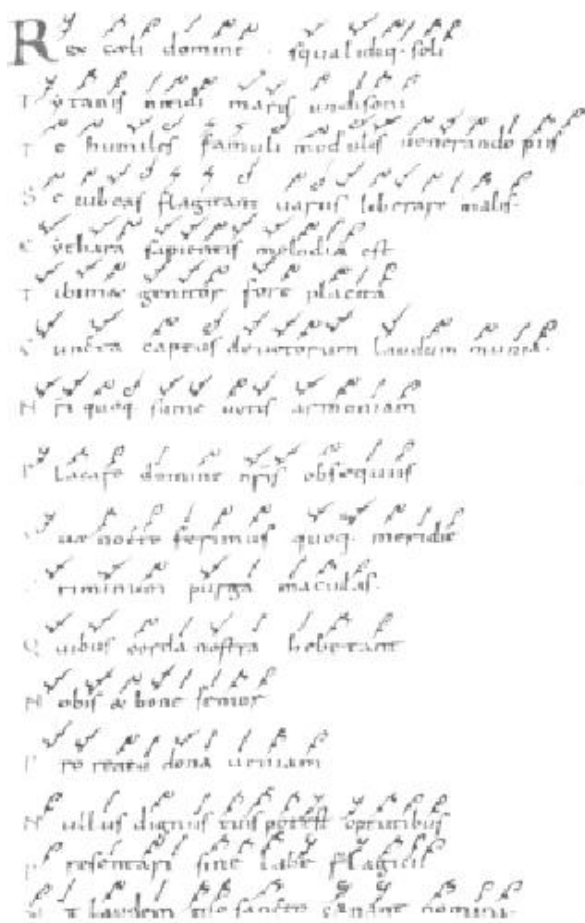 Rex cæli domine · squalidiq· soli
Tytanis nitidi maris undisoni
Te humiles famuli modulis uenerando piis
Se iubeas flagitant uariis liberare malis·
Cythara sapientis melodia est
Tibimæ genitor fore placita
Cuncta captus deuotorum laudum munia·
N quoq· sume armoniam
Placare domine nris obsequiis
nocte ferimus quoq· meridie
Criminum purga maculas·
Quibus corda nostra hebetant
Nobis & bone
Pro reatu dona ueniam
Nullus dignus tuis potest optutibus
Presentari sine labe flagicii
laudem sancto nomini